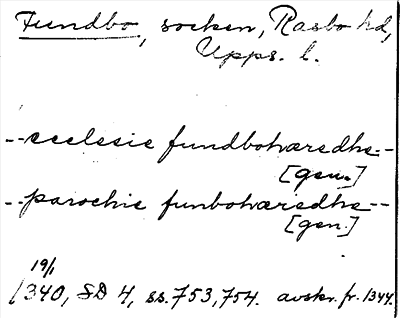 Fundbo, socken, Rasbo hd,
Upps. l.
--ecclesie fundbohæredhe--
[gen.]
--parochie funbohæridhe--
[gen.]
19/1
1340, SD 4, ss. 753, 754. avskr. fr. 1344.